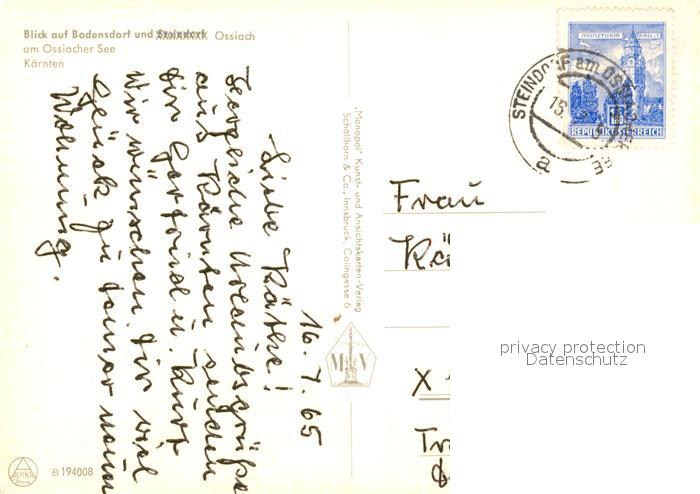 Blick auf Bodensdorf und Steindorf Ossiach
am Ossiacher See
Kärnten
16. 7. 65
Liebe Käthe!
Herzliche Urlaubsgrüße
aus Kärnten senden
dir Gertrud u. Kurt
Wir wünschen dir viel
Glück zu deiner neuen
Wohnung.
"Monopol" Kunst- und Ansichtskarten-Verlag
Schöllhorn & Co., Innsbruck, Colingasse 6
MÜNZTURM HALL I.T.
REPUBLIK ÖSTERREICH
STEINDORF am OSSIACHER SEE
a
Frau
Kä
X
Tr
privacy protection
Datenschutz
ALPINA
B 194008